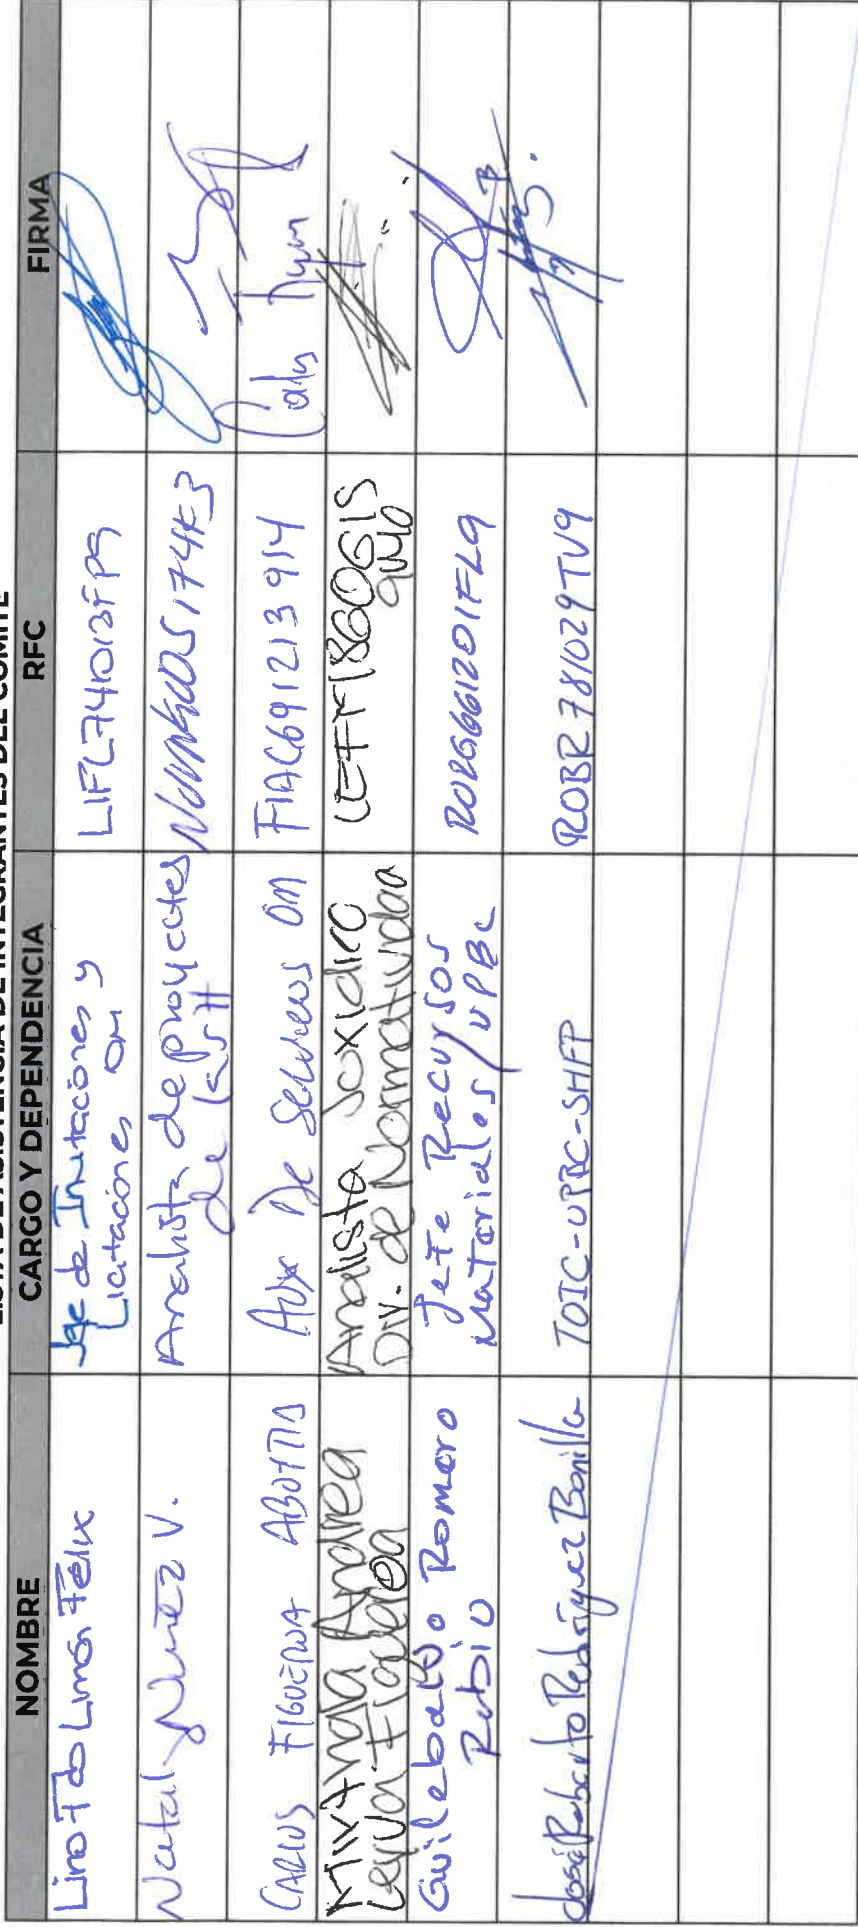 LISTA DE ASISTENCIA DE INTEGRANTES DEL COMITÉ
NOMBRE CARGO Y DEPENDENCIA RFC FIRMA
Lino Fdo Limón Félix
Jefe de Invitaciones y
Licitaciones OM
LIFL741013FP9
Nataly Nuñez V.
Analista de proyectos
de la SH
CARLOS FIGUEROA ABOYTIA
Aux De Servicios OM
FIAC691213914
Miranda Andrea
Leyva Figueroa
Analista Jurídico
Div. de Normatividad
Guilebaldo Romero
Rubio
Jefe Recursos
Materiales/UPBC
RORG661201FL9
José Roberto Rodríguez Bonilla
TOIC-UPBC-SHFP
ROBR781029TV9